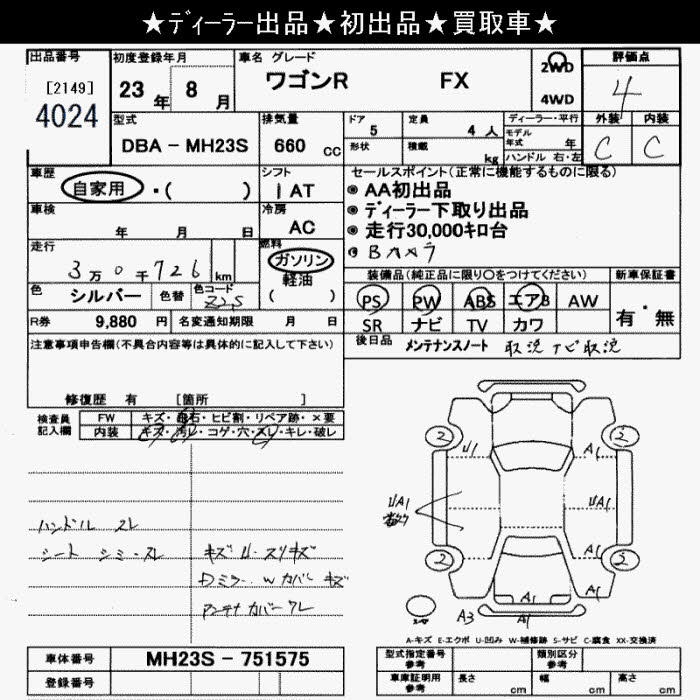 ★ディーラー出品★初出品★買取車★
出品番号 初度登録年月 車名 グレード 評価点
[2149] 23 年 8 月 ワゴンR FX 2WD 4
4024 4WD
型式 排気量 ドア 定員 ディーラー・平行 外装 内装
DBA - MH23S 660 cc 5 4 人 モデル年式 年 C C
形状 積載 kg ハンドル 右・左
車歴 シフト セールスポイント(正常に機能するものに限る)
自家用 ・( ) I AT ◉ AA初出品
車検 冷房 ◉ ディーラー下取り出品
年 月 日 AC ◉ 走行30,000キロ台
走行 燃料 ◉ Bカメラ
3万0千726 km ガソリン
軽油
( )
装備品(純正品に限り○をつけてください) 新車保証書
色 シルバー 色替 色コード Z2S PS PW ABS エアB AW 有・無
R券 9,880 円 名変通知期限 月 日 SR ナビ TV カワ
注意事項申告欄(不具合内容等は具体的に記入して下さい) 後日品 メンテナンスノート 取説 ナビ取説
修復歴 有 [箇所 ]
検査員記入欄 FW キズ・飛石・ヒビ割・リペア跡・×要
内装 キズ・汚レ・コゲ・穴・スレ・キレ・破レ
2 U1 A1 2
UA1 UA1
A1
2 2
A1
A1
A3 A1
ハンドル スレ
シート シミ・スレ キズ U・スリキズ
Dミラー Wカバー キズ
アンテナカバーワレ
A-キズ E-エクボ U-凹み W-補修跡 S-サビ C-腐食 XX-交換済
車体番号 MH23S - 751575 型式指定番号 参考 類別区分 参考
登録番号 車庫証明用 参考 長さ cm 幅 cm 高さ cm